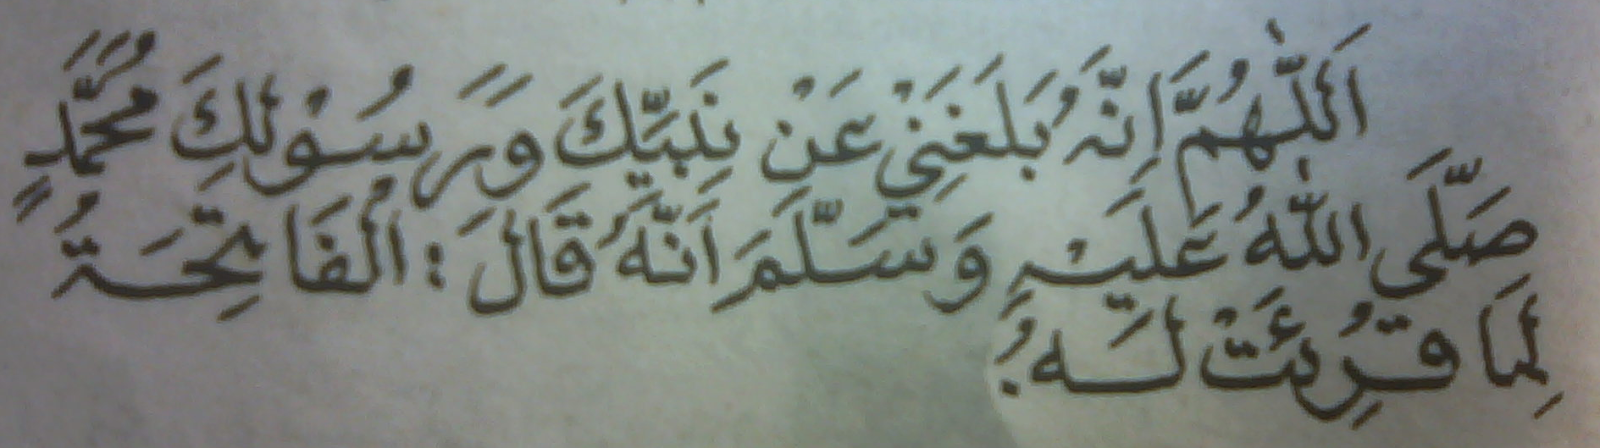 اَللّٰهُمَّ اِنَّهُ بَلَغَنِيْ عَنْ نَبِيِّكَ وَرَسُوْلِكَ مُحَمَّدٍ
صَلَّى اللّٰهُ عَلَيْهِ وَسَلَّمَ اَنَّهُ قَالَ : اَلْفَاتِحَةُ
لِمَا قُرِئَتْ لَهُ.